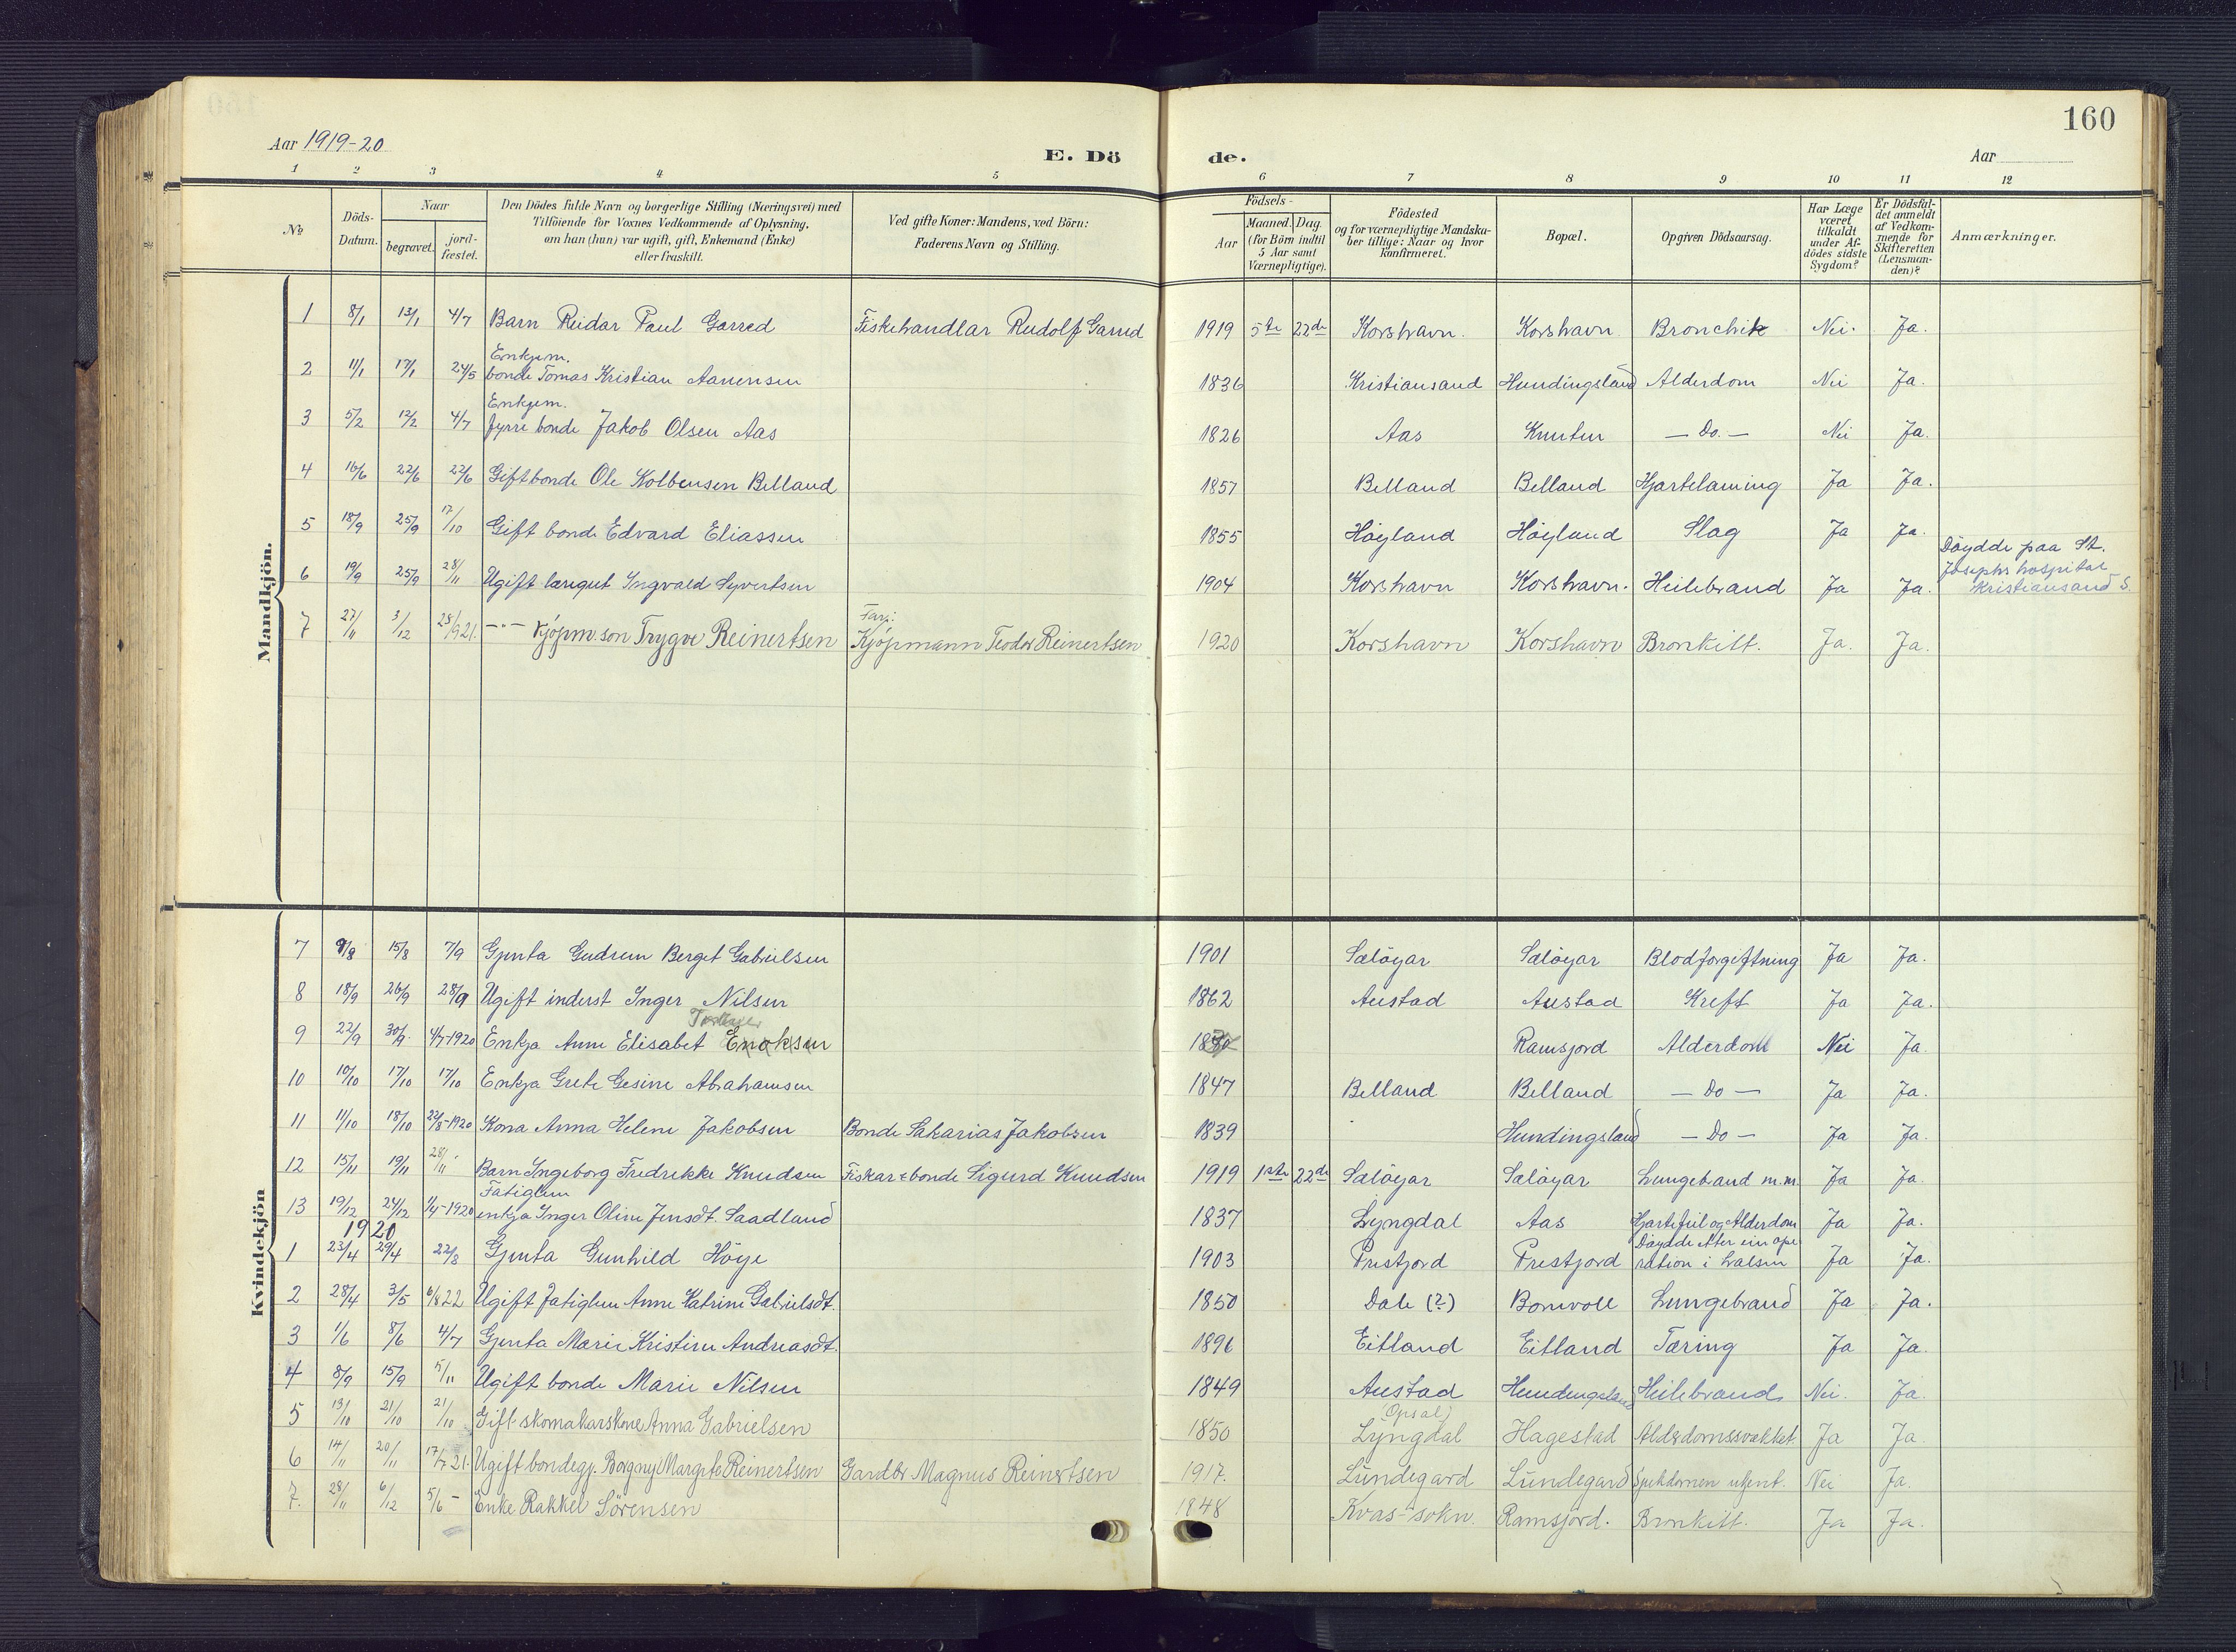 160
Aar 1919-20
E. Dö de.
Aar
1 2 3 4 5 6 7 8 9 10 11 12
No
Döds-Datum.
Naar
begravet.
jord-fæstet.
Den Dödes fulde Navn og borgerlige Stilling (Næringsvei) med
Tilföiende for Voxnes Vedkommende af Oplysning,
om han (hun) var ugift, gift, Enkemand (Enke)
eller fraskilt.
Ved gifte Koner: Mandens, ved Börn:
Faderens Navn og Stilling.
Födsels-
Aar
Maaned. Dag.
(for Börn indtil
5 Aar samt
Værnepligtige).
Födested
og for værnepligtige Mandska-
ber tillige: Naar og hvor
konfirmeret.
Bopæl.
Opgiven Dödsaarsag.
Har Læge
været
tilkaldt
under Af-
dödes sidste
Sygdom?
Er Dödsfal-
det anmeldt
af Vedkom-
mende for
Skifteretten
(Lensman-
den)?
Anmærkninger.
Mandkjön.
1 8/1 13/1 4/7 Barn Reidar Paul Garred Fiskehandlar Rudolf Garred 1919 5te 22de Korshavn. Korshavn Bronchit Nei. Ja.
Enkjem.
2 11/1 17/1 24/5 bonde Tomas Kristian Aanensen 1836 Kristiansand Hundingsland Alderdom Nei Ja.
Enkjem.
3 5/2 12/2 4/7 fyrre bonde Jakob Olsen Aas 1826 Aas Knutun — Do. — Nei Ja.
4 16/6 22/6 22/6 Gift bonde Ole Kolbensen Belland 1857 Belland Belland Hjartelaming Ja Ja.
5 18/9 25/9 17/10 Gift bonde Edvard Eliassen 1855 Høyland Høyland Slag Ja Ja.
6 19/9 25/9 28/11 Ugift læregut Ingvald Syvertsen 1904 Korshavn Korshavn. Heilebrand Ja Ja. Døydde paa St.
Josephs hospital
Kristiansand S.
7 27/11 3/12 28/9 21. —"— Kjøpm.son Trygve Reinertsen Far: Kjøpmann Teodor Reinertsen 1920 Korshavn Korshavn Bronkitt. Ja. Ja.
Kvindekjön
7 9/8 15/8 7/9 Gjenta Gudrun Berget Gabrielsen 1901 Sæløyar Sæløyar Blodforgiftning Ja Ja.
8 18/9 26/9 28/9 Ugift inderst Inger Nilsen 1862 Austad Austad Kreft Ja Ja.
9 22/9 30/9. 4/7-1920 Enkja Anne Elisabet Enoksen Ramsjord Alderdom Nei Ja.
10 10/10 17/10 17/10 Enkja Grete Gesine Abrahamsen 1847 Belland Belland — Do — Ja Ja.
11 11/10 18/10 22/8-1920 Kona Anna Helene Jakobsen Bonde Sakarias Jakobsen 1839 Hundingsland — Do — Ja Ja.
12 15/11 19/11 28/11 Barn Ingeborg Fredrekke Knudsen Fiskar & bonde Sigurd Knudsen 1919 1ste 22de Sæløyar Sæløyar Lungebrand m.m. Ja Ja.
Fatiglem
13 19/12 24/12 1/4-1920 enkja Inger Oline Jensdt. Saadland 1837 Lyngdal Aas Hjartefeil og Alderdom Ja Ja.
1920
1 23/4 29/4 22/8 Gjenta Gunhild Høye 1903 Prestjord Prestjord Døydde etter ein ope
ration i halsen Ja Ja.
2 28/4 3/5 6/8 22 Ugift fatiglem Anne Katrine Gabrielsdt. 1850 Dale (?) Bomvoll Lungebrand Ja Ja.
3 1/6 8/6 4/7 Gjenta Marie Kristine Andreasdt. 1896 Eitland Eitland Tæring Ja Ja.
4 8/9 15/9 5/11 Ugift bonde Marie Nilsen 1849 Austad Hundingsland Heilebrand Nei. Ja.
5 13/10 21/10 21/10 Gift skomakarskone Anna Gabrielsen 1850 (Opsal)
Lyngdal Hagestad Alderdomssvakhet Ja Ja
6 14/11 20/11 17/7 21. Ugift bondegj. Borgny Margete Reinertsen Gardbr. Magnus Reinertsen 1917. Lundegard Lundegard Sjukdomen ukjent. Nei Ja.
7. 28/11 6/12 5/6 — Enke Rakkel Sørensen 1848 Kvas-sokn. Ramsjord. Bronkitt. Ja Ja.